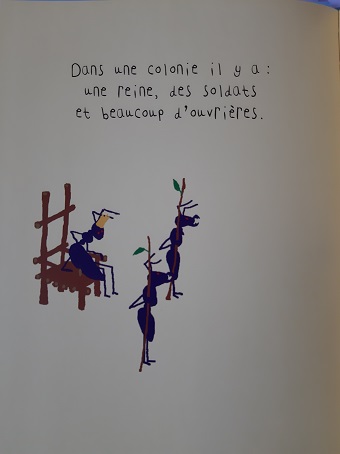 Dans une colonie il y a :
une reine, des soldats
et beaucoup d'ouvrières.